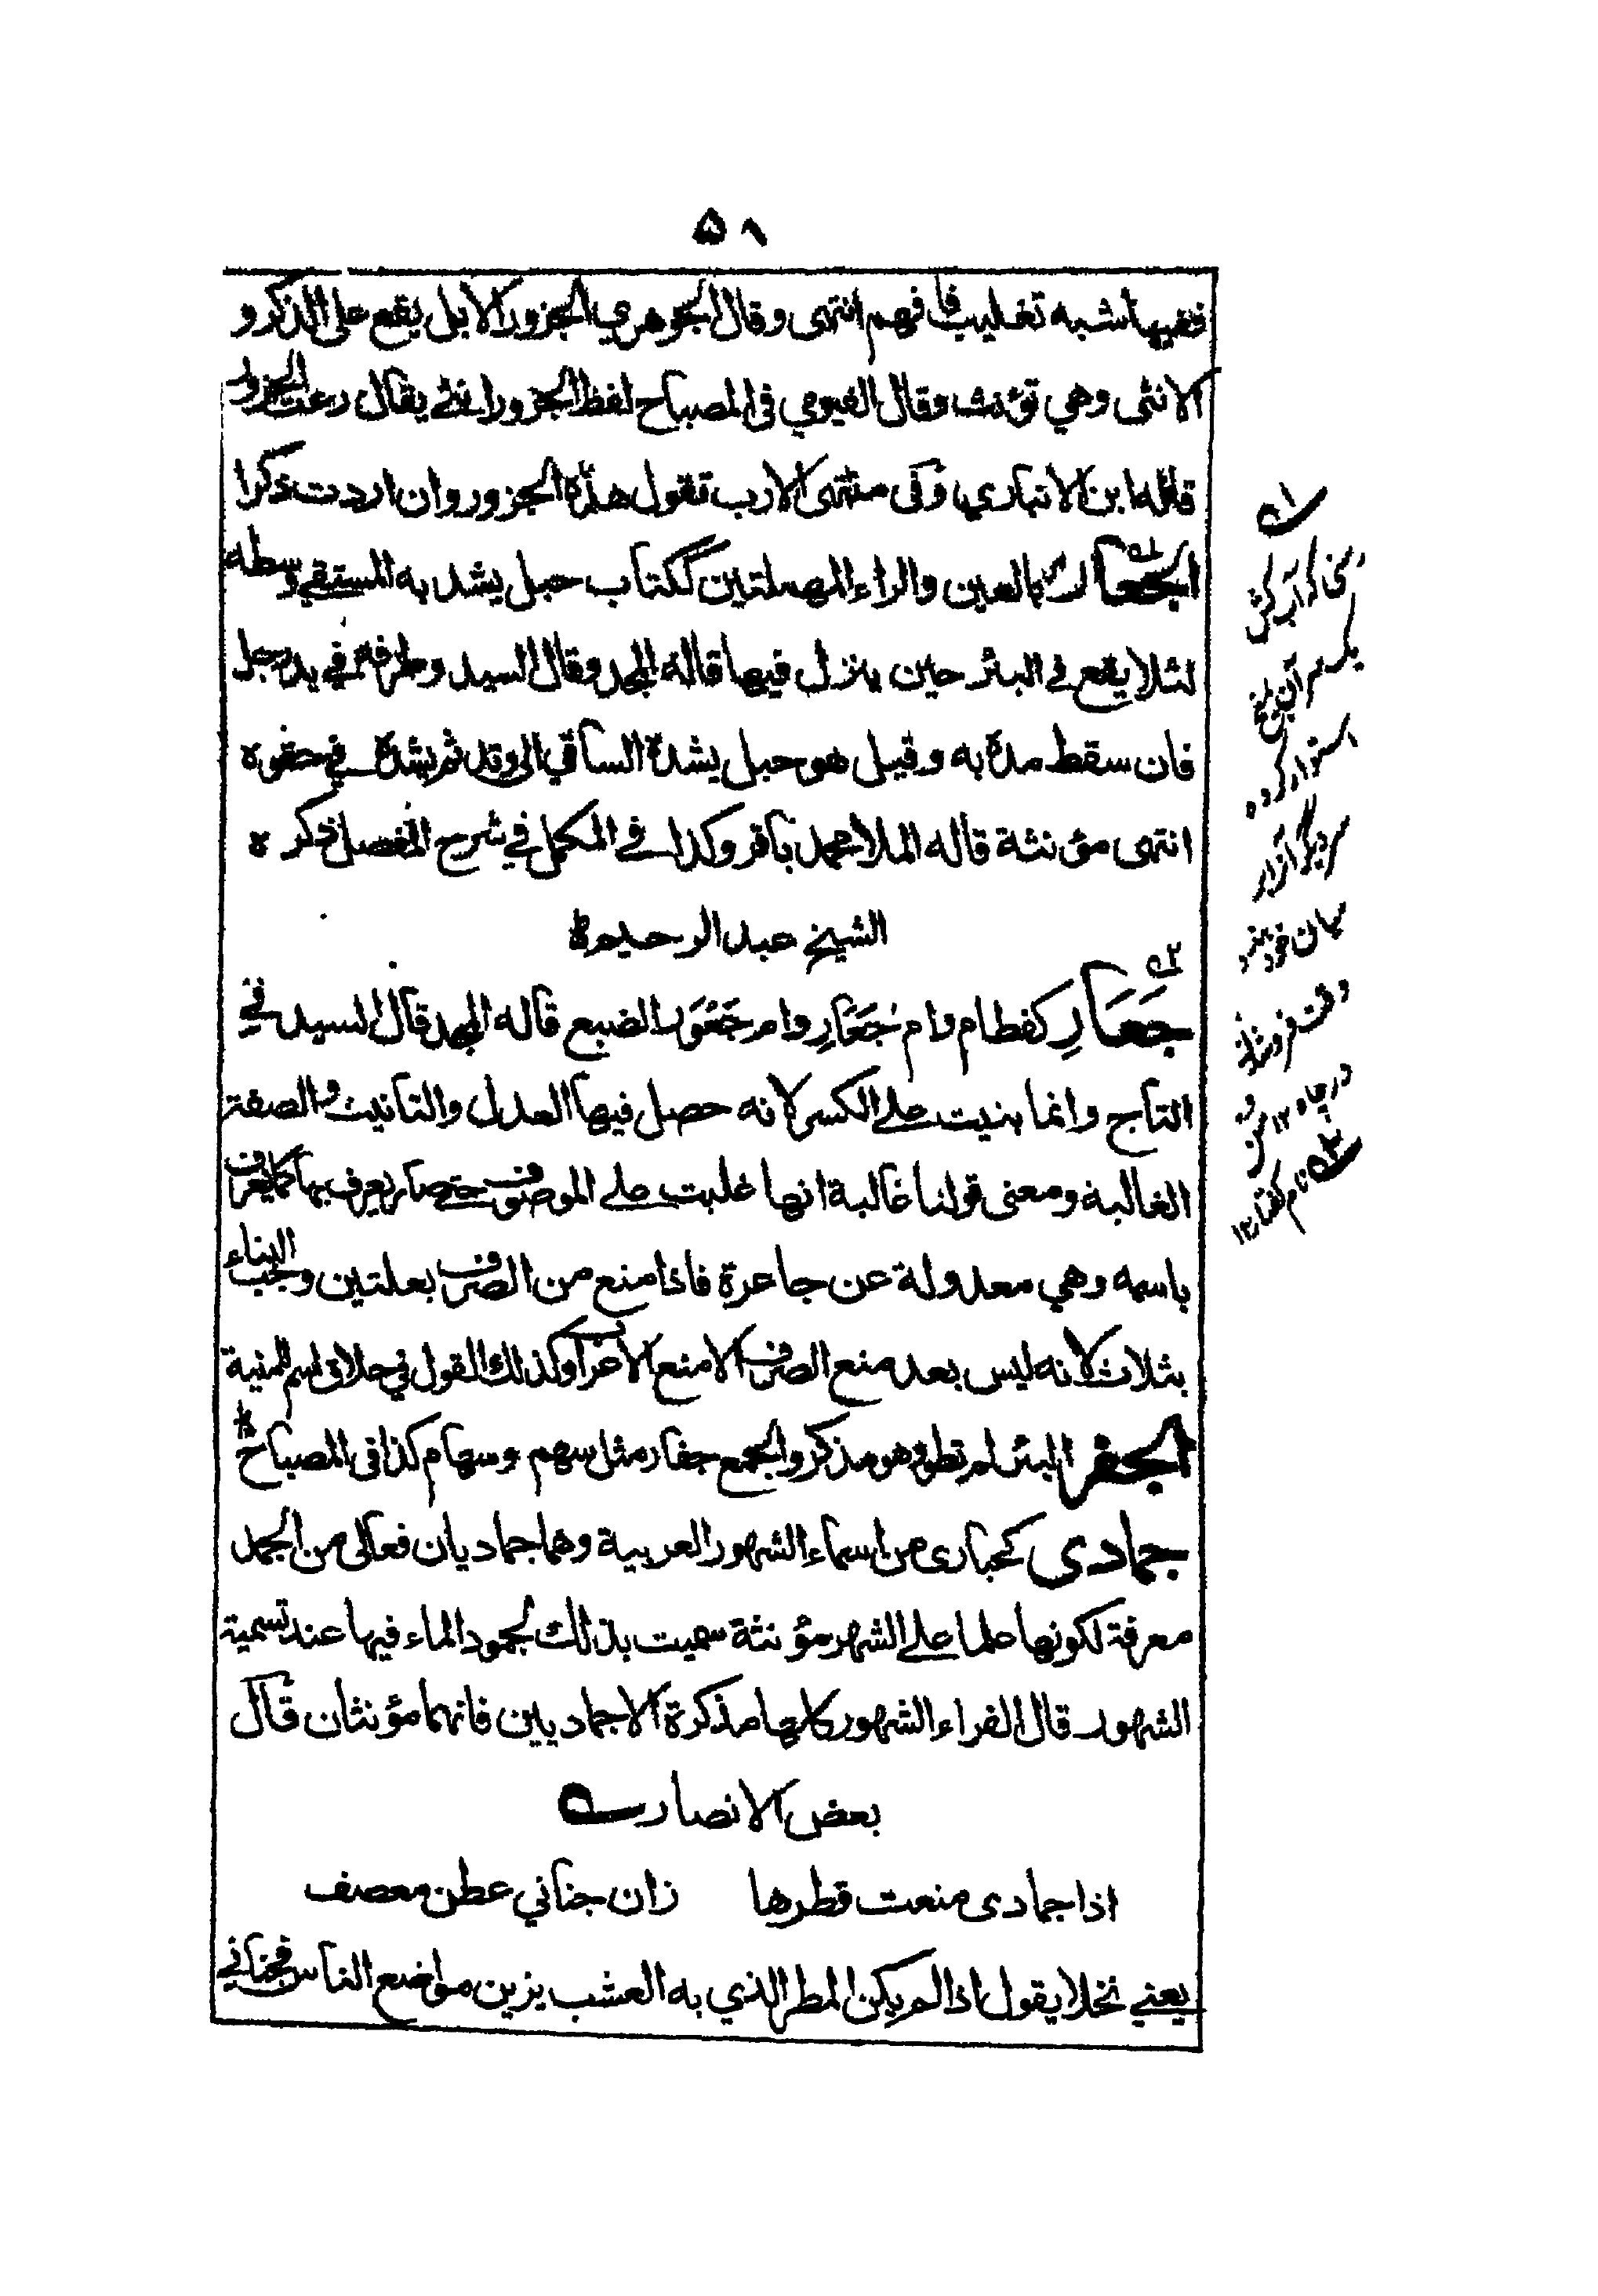 ۵۸
ففيها شبه تغليب فافهم انتهى وقال الجوهري الجزور الابل يقع على الذكر و
الانثى وهي تؤنث وقال الفيومي في المصباح لفظ الجزور انثى يقال رعت الجزور
قاله ابن الانباري وفي منتهى الارب تقول هذه الجزور وان اردت ذكرا
الجعار بالعين والراء المهملتين ككتاب حبل يشد به المستقي وسطه
لئلا يقع في البئر حين ينزل فيها قاله المجد وقال السيد وطرفه في يد رجل
فان سقط مده به وقيل هو حبل يشده الساقي الى وتد ثم يشده في حقوه
انتهى مؤنثة قاله الملا محمد باقر وكذا في المكمل في شرح المفصل ذكره
الشيخ عبد الرحيم
جَعَارِ كفطام وام جَعَارِ وام جَعْوَر الضبع قاله المجد قال السيد في
التاج وانما بنيت على الكسر لانه حصل فيها العدل والتانيث والصفة
الغالبة ومعنى قولنا غالبة انها غلبت على الموصوف حتى صار يعرف بها كما يعرف
باسمه وهي معدولة عن جاعرة فاذا منع من الصرف بعلتين وجب البناء
بثلاث لانه ليس بعد منع الصرف الا منع الاعراب وكذلك القول في حلاق اسم للمنية
الجفر البئر لم تطو وهو مذكر والجمع جفار مثل سهم وسهام كذا في المصباح
جمادى كحبارى من اسماء الشهور العربية وهما جماديان فعالى من الجمد
معرفة لكونها علما على الشهر مؤنثة سميت بذلك لجمود الماء فيها عند تسمية
الشهور قال الفراء الشهور كلها مذكرة الا جماديين فانهما مؤنثان قال
بعض الانصار
اذا جمادى منعت قطرها زان جناني عطن معصف
يعني نخلا يقول اذا لم يكن المطر الذي به العشب يزين مواضع الناس فجناني
رسنی که آبکش
یکسر آن بمیخ
استوار کرده
سر دیگر آنرا در
میان خود بندد
وقت فرو شدن
در چاه ۱۲ منه
نام کفتار ۱۲